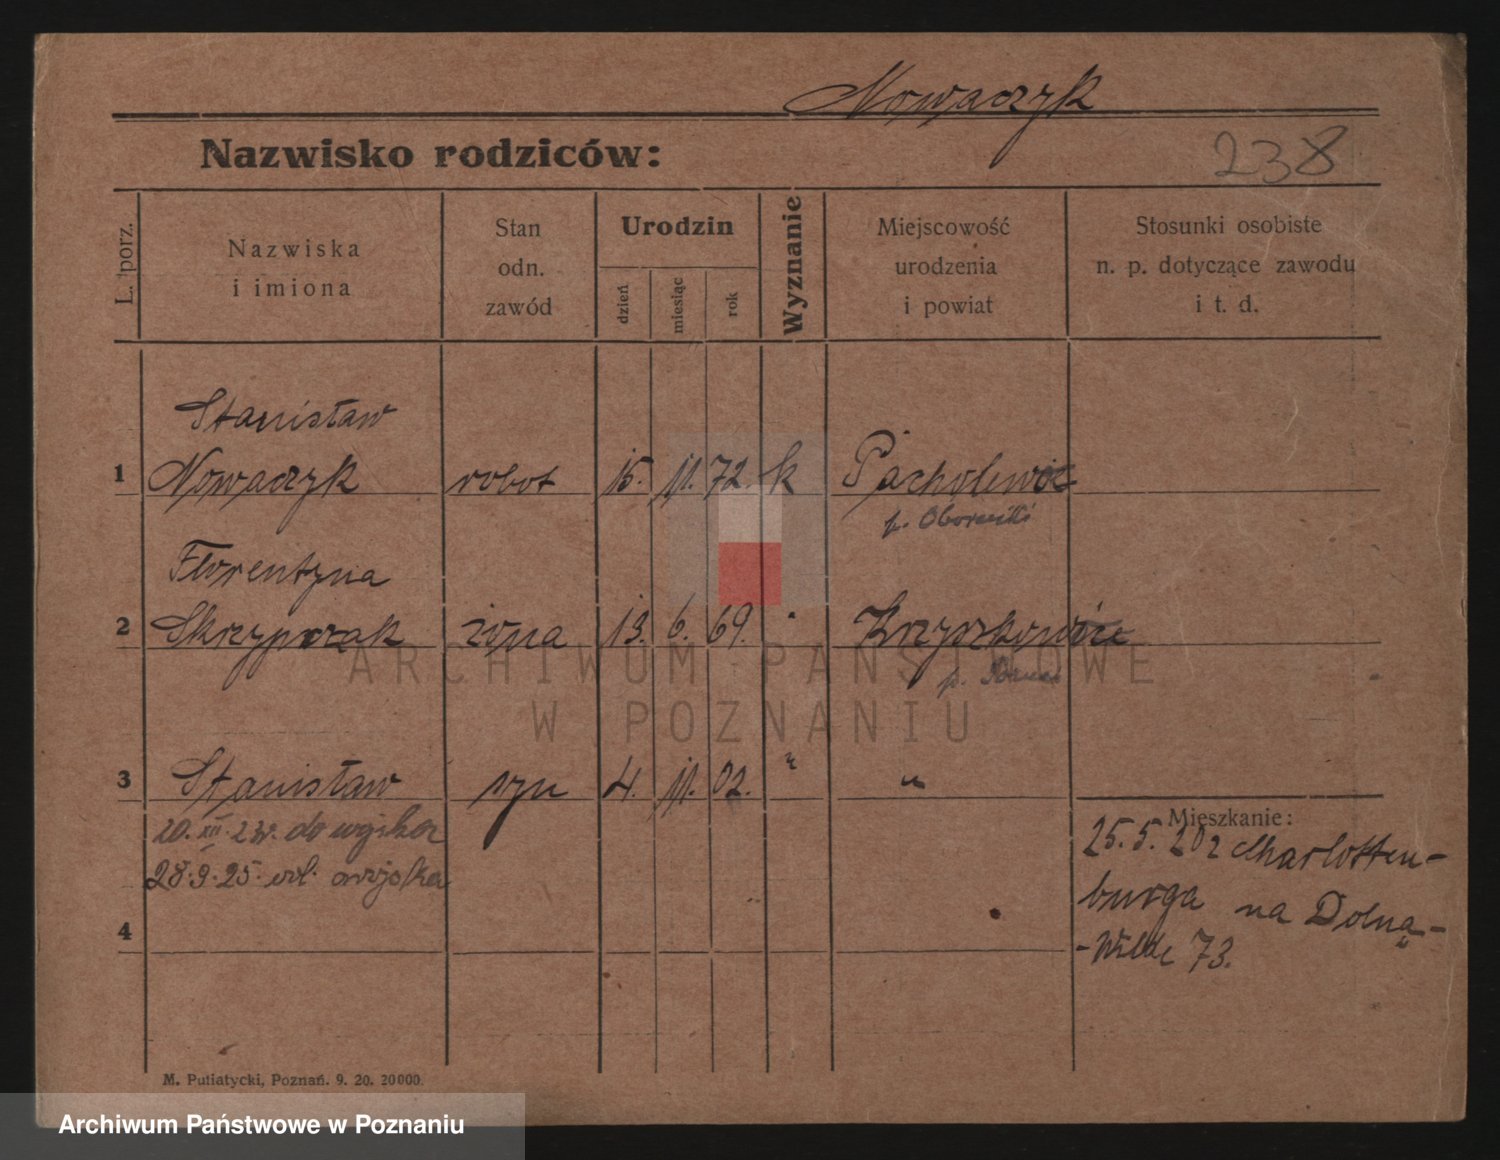 Nowaczyk
Nazwisko rodziców:
238
L. porz.
Nazwiska
i imiona
Stan
odn.
zawód
Urodzin
dzień
miesiąc
rok
Wyznanie
Miejscowość
urodzenia
i powiat
Stosunki osobiste
n. p. dotyczące zawodu
i t. d.
Stanisław
1 Nowaczyk robot 15. 11. 72. k Pacholewo
p. Oborniki
Florentyna
2 Skrzypczak żona 13. 6. 69. " Krzyszkowie
p.
3 Stanisław syn 4. 11. 02. " "
20. XII. do wojska
28. 9. 25. wojska
4
Mieszkanie:
25. 5. 20 z Charlotten-
burga na Dolną-
-Wilde 73.
M. Putiatycki, Poznań. 9. 20. 20000.
ARCHIWUM PAŃSTWOWE
W POZNANIU
Archiwum Państwowe w Poznaniu